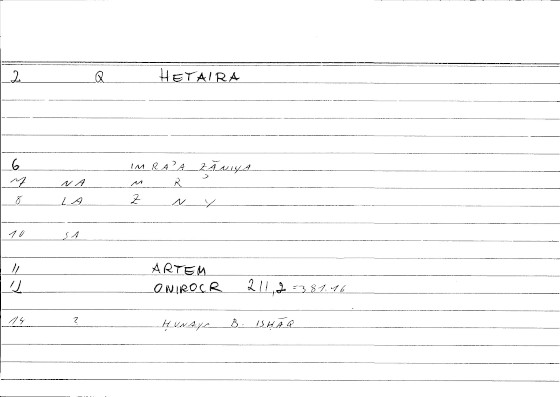 2 Q HETAIRA
6 IMRAʾA ZĀNIYA
7 NA M R ʾ
8 LA Z N Y
10 SA
11 ARTEM
12 ONIROCR 211,2 = 381.16
14 2 ḤUNAYN B. ISḤĀQ